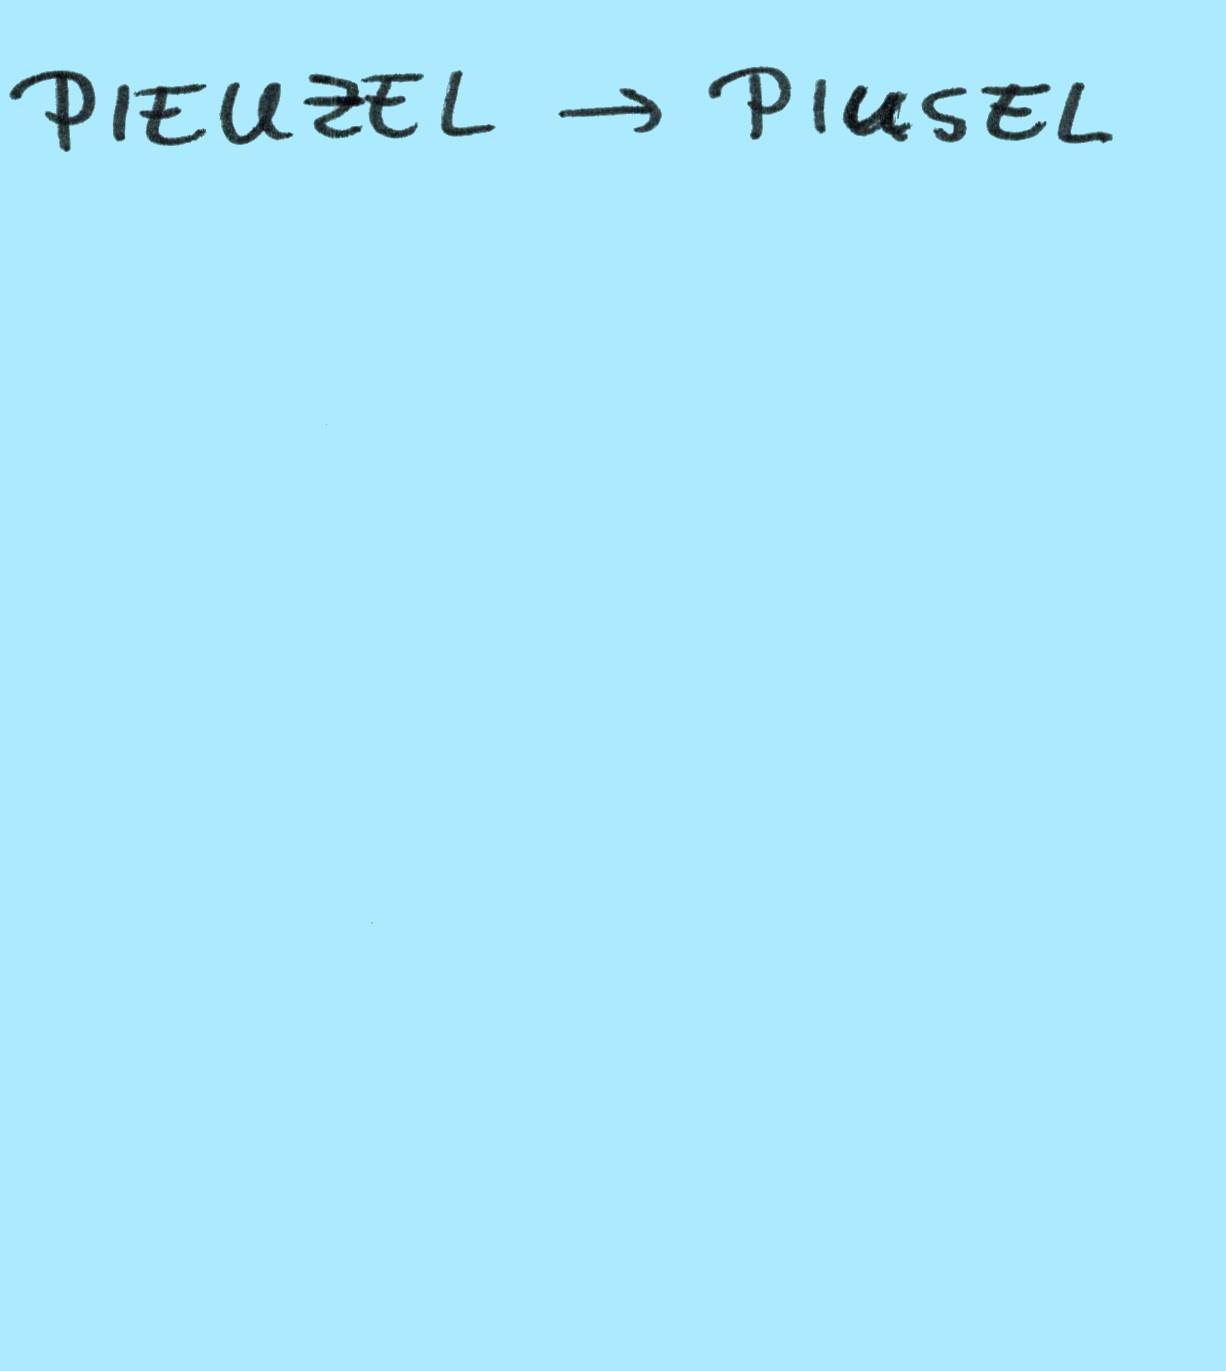 PIEUZEL → PIUSEL